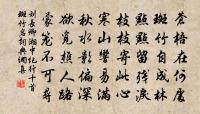 蒼梧在何處
斑竹自成林
點點留殘淚
枝枝寄此心
寒山響易滿
秋水影偏深
欲覓樵人路
蒙籠不可尋
劉長卿湘中紀行十首
斑竹岩詞典網